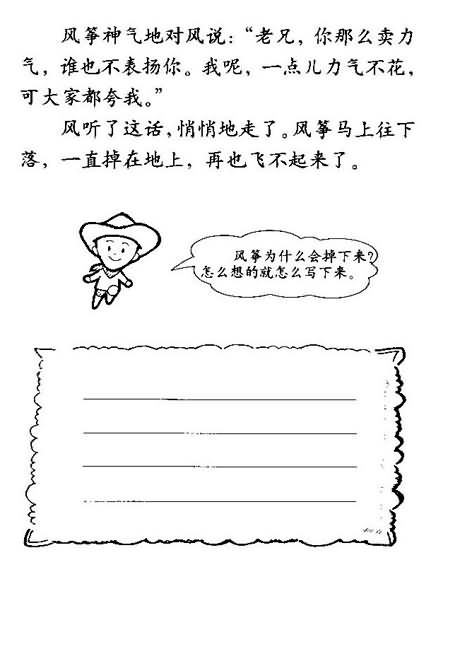 风筝神气地对风说：“老兄，你那么卖力
气，谁也不表扬你。我呢，一点儿力气不花，
可大家都夸我。”
风听了这话，悄悄地走了。风筝马上往下
落，一直掉在地上，再也飞不起来了。
风筝为什么会掉下来？
怎么想的就怎么写下来。